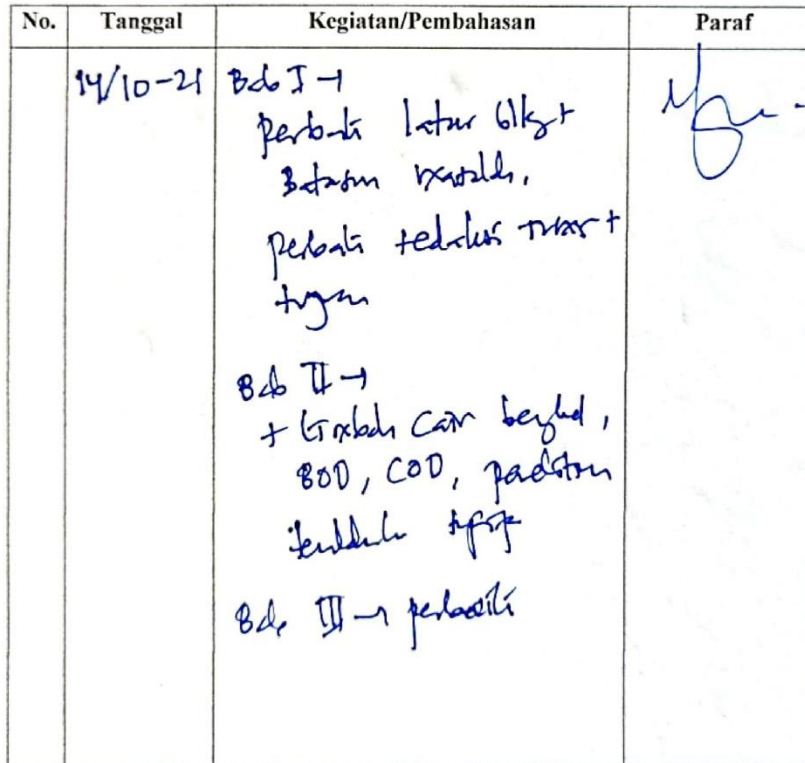 No. Tanggal Kegiatan/Pembahasan Paraf
14/10-21 Bab I →
perbaiki latar blkg +
Batasan masalah,
perbaiki redaksi +
tujuan
Bab II →
+ Limbah Cair bengkel,
BOD, COD, penelitian
terdahulu
Bab III → perbaiki